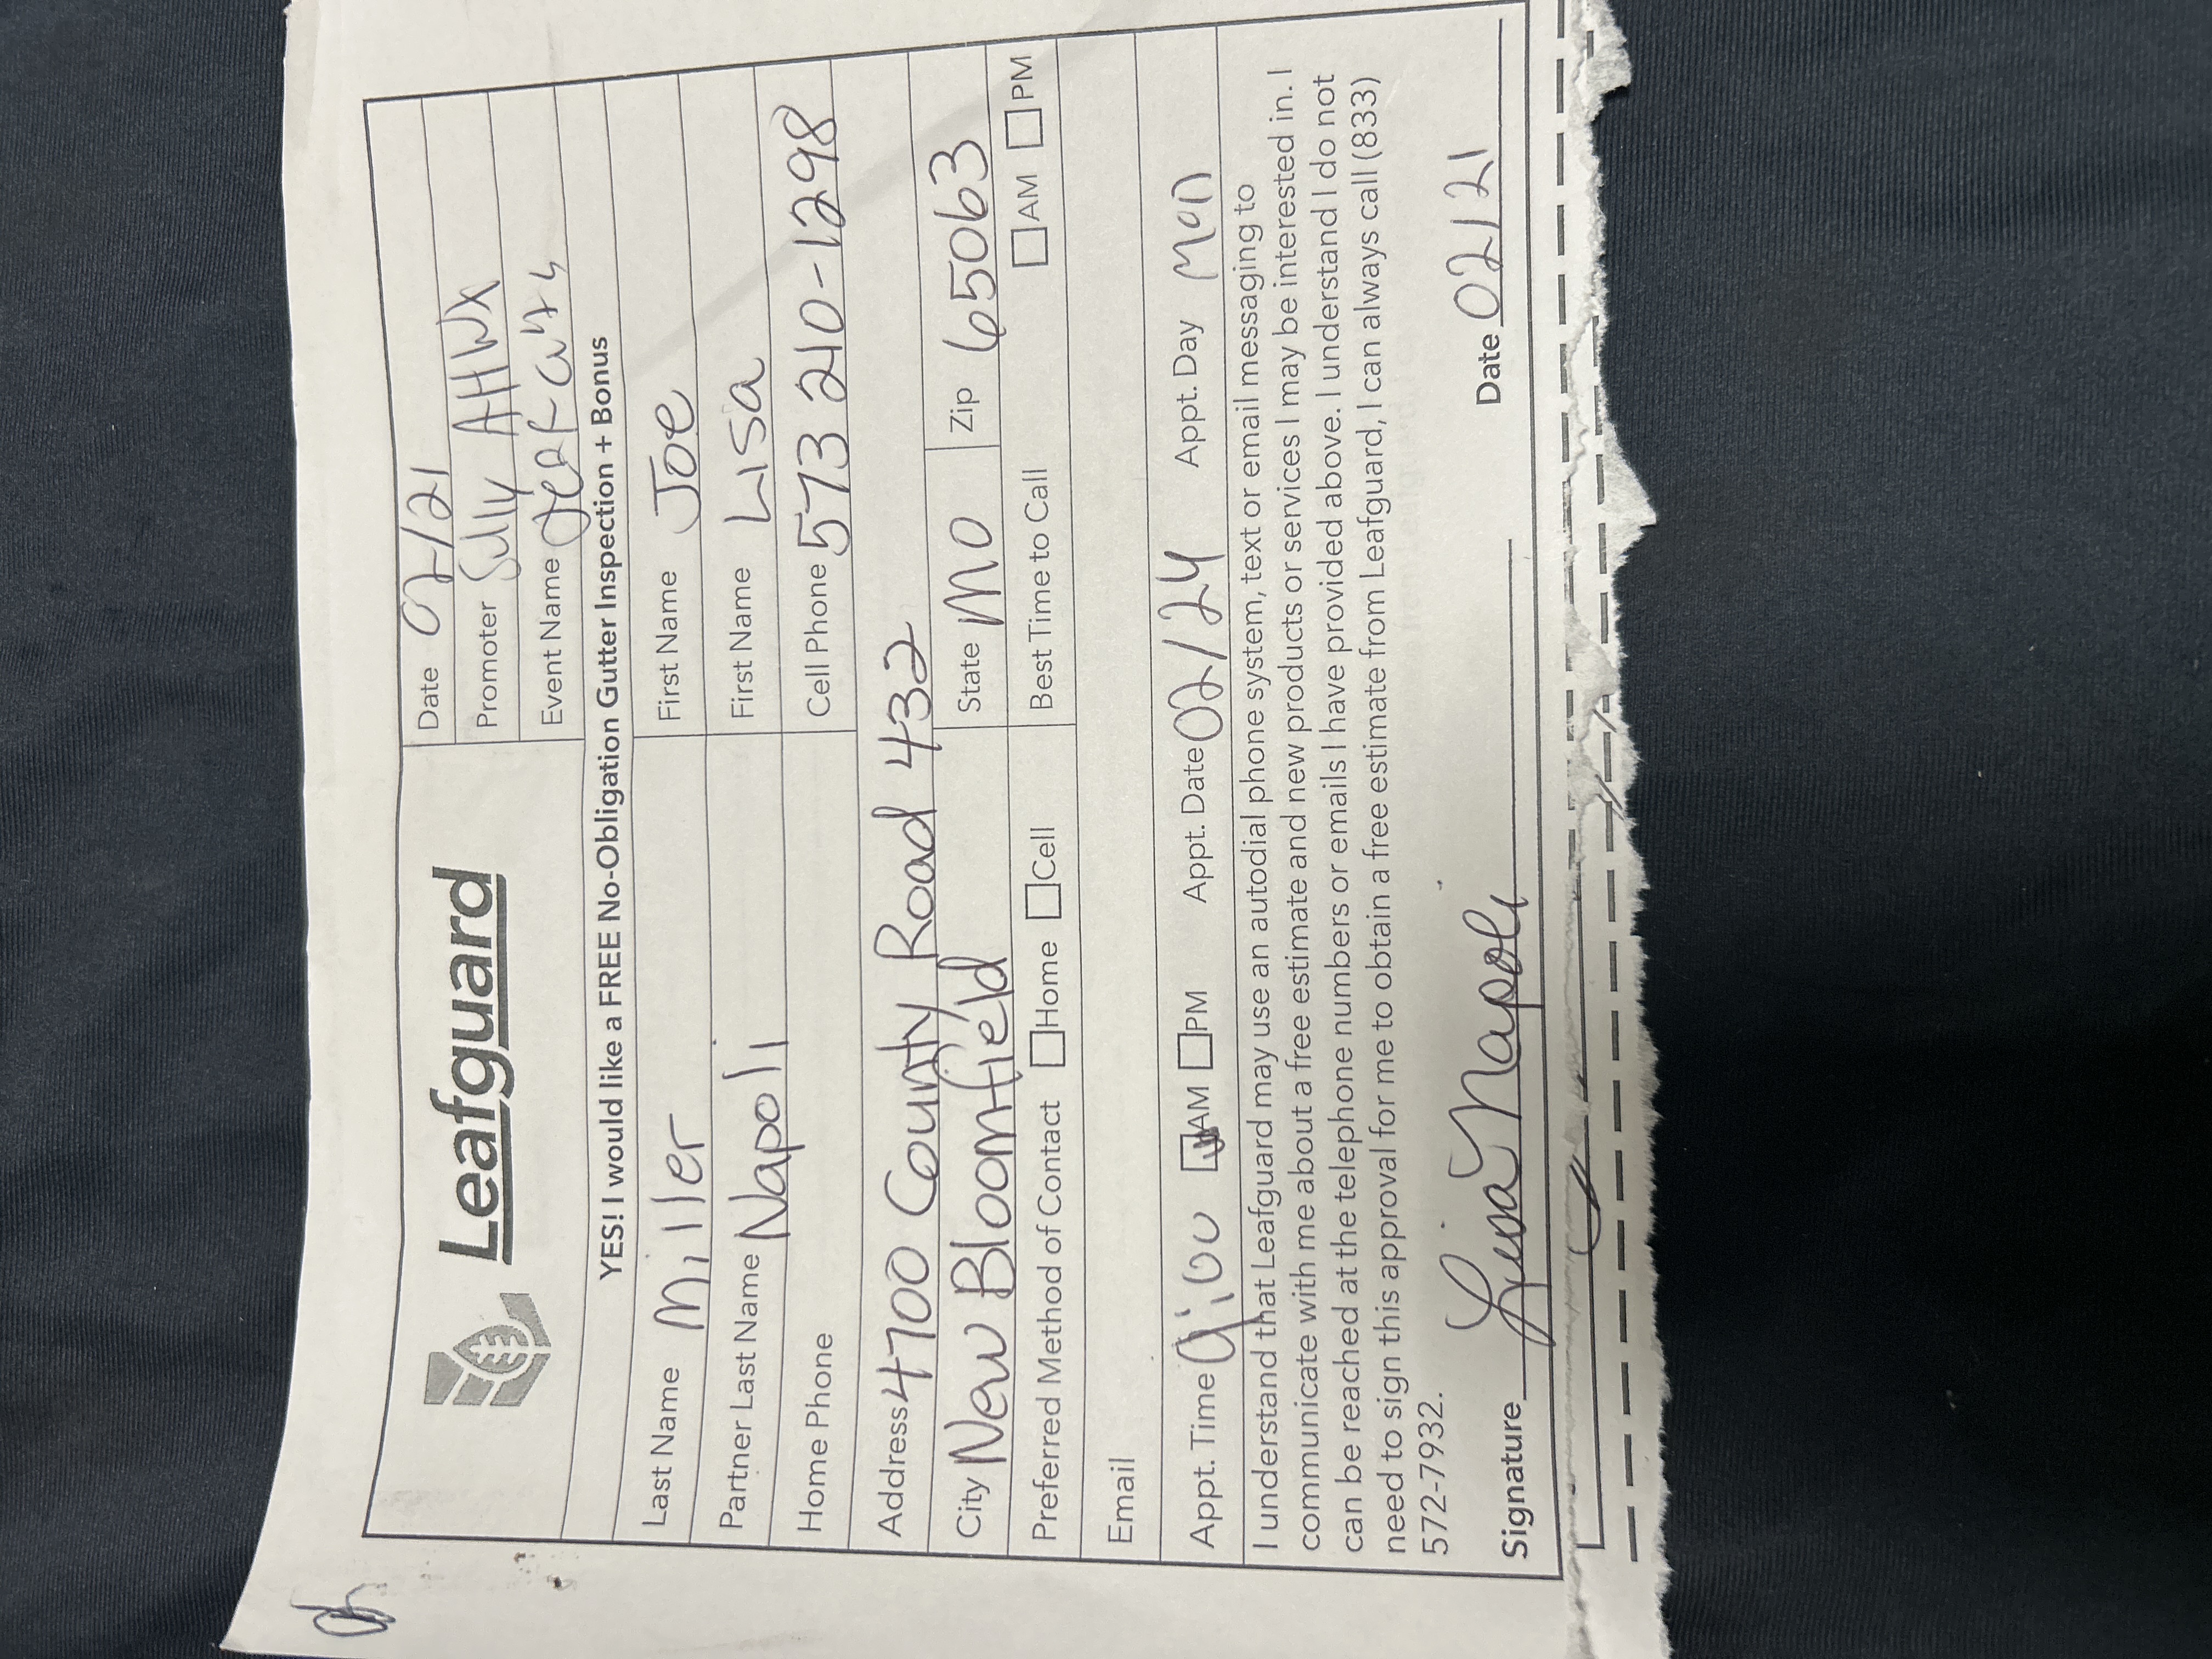 Leafguard
Date 02/21
Promoter AHWX
Event Name
YES! I would like a FREE No-Obligation Gutter Inspection + Bonus
Last Name Miller First Name Joe
Partner Last Name Napoli First Name Lisa
Home Phone Cell Phone 573 210-1298
Address 4700 County Road 432
City New Bloomfield State MO Zip 65063
Preferred Method of Contact Home Cell Best Time to Call AM PM
Email
Appt. Time 9:00 AM PM Appt. Date 02/24 Appt. Day Mon
I understand that Leafguard may use an autodial phone system, text or email messaging to
communicate with me about a free estimate and new products or services I may be interested in. I
can be reached at the telephone numbers or emails I have provided above. I understand I do not
need to sign this approval for me to obtain a free estimate from Leafguard, I can always call (833)
572-7932.
Signature Lisa Napoli Date 02/21